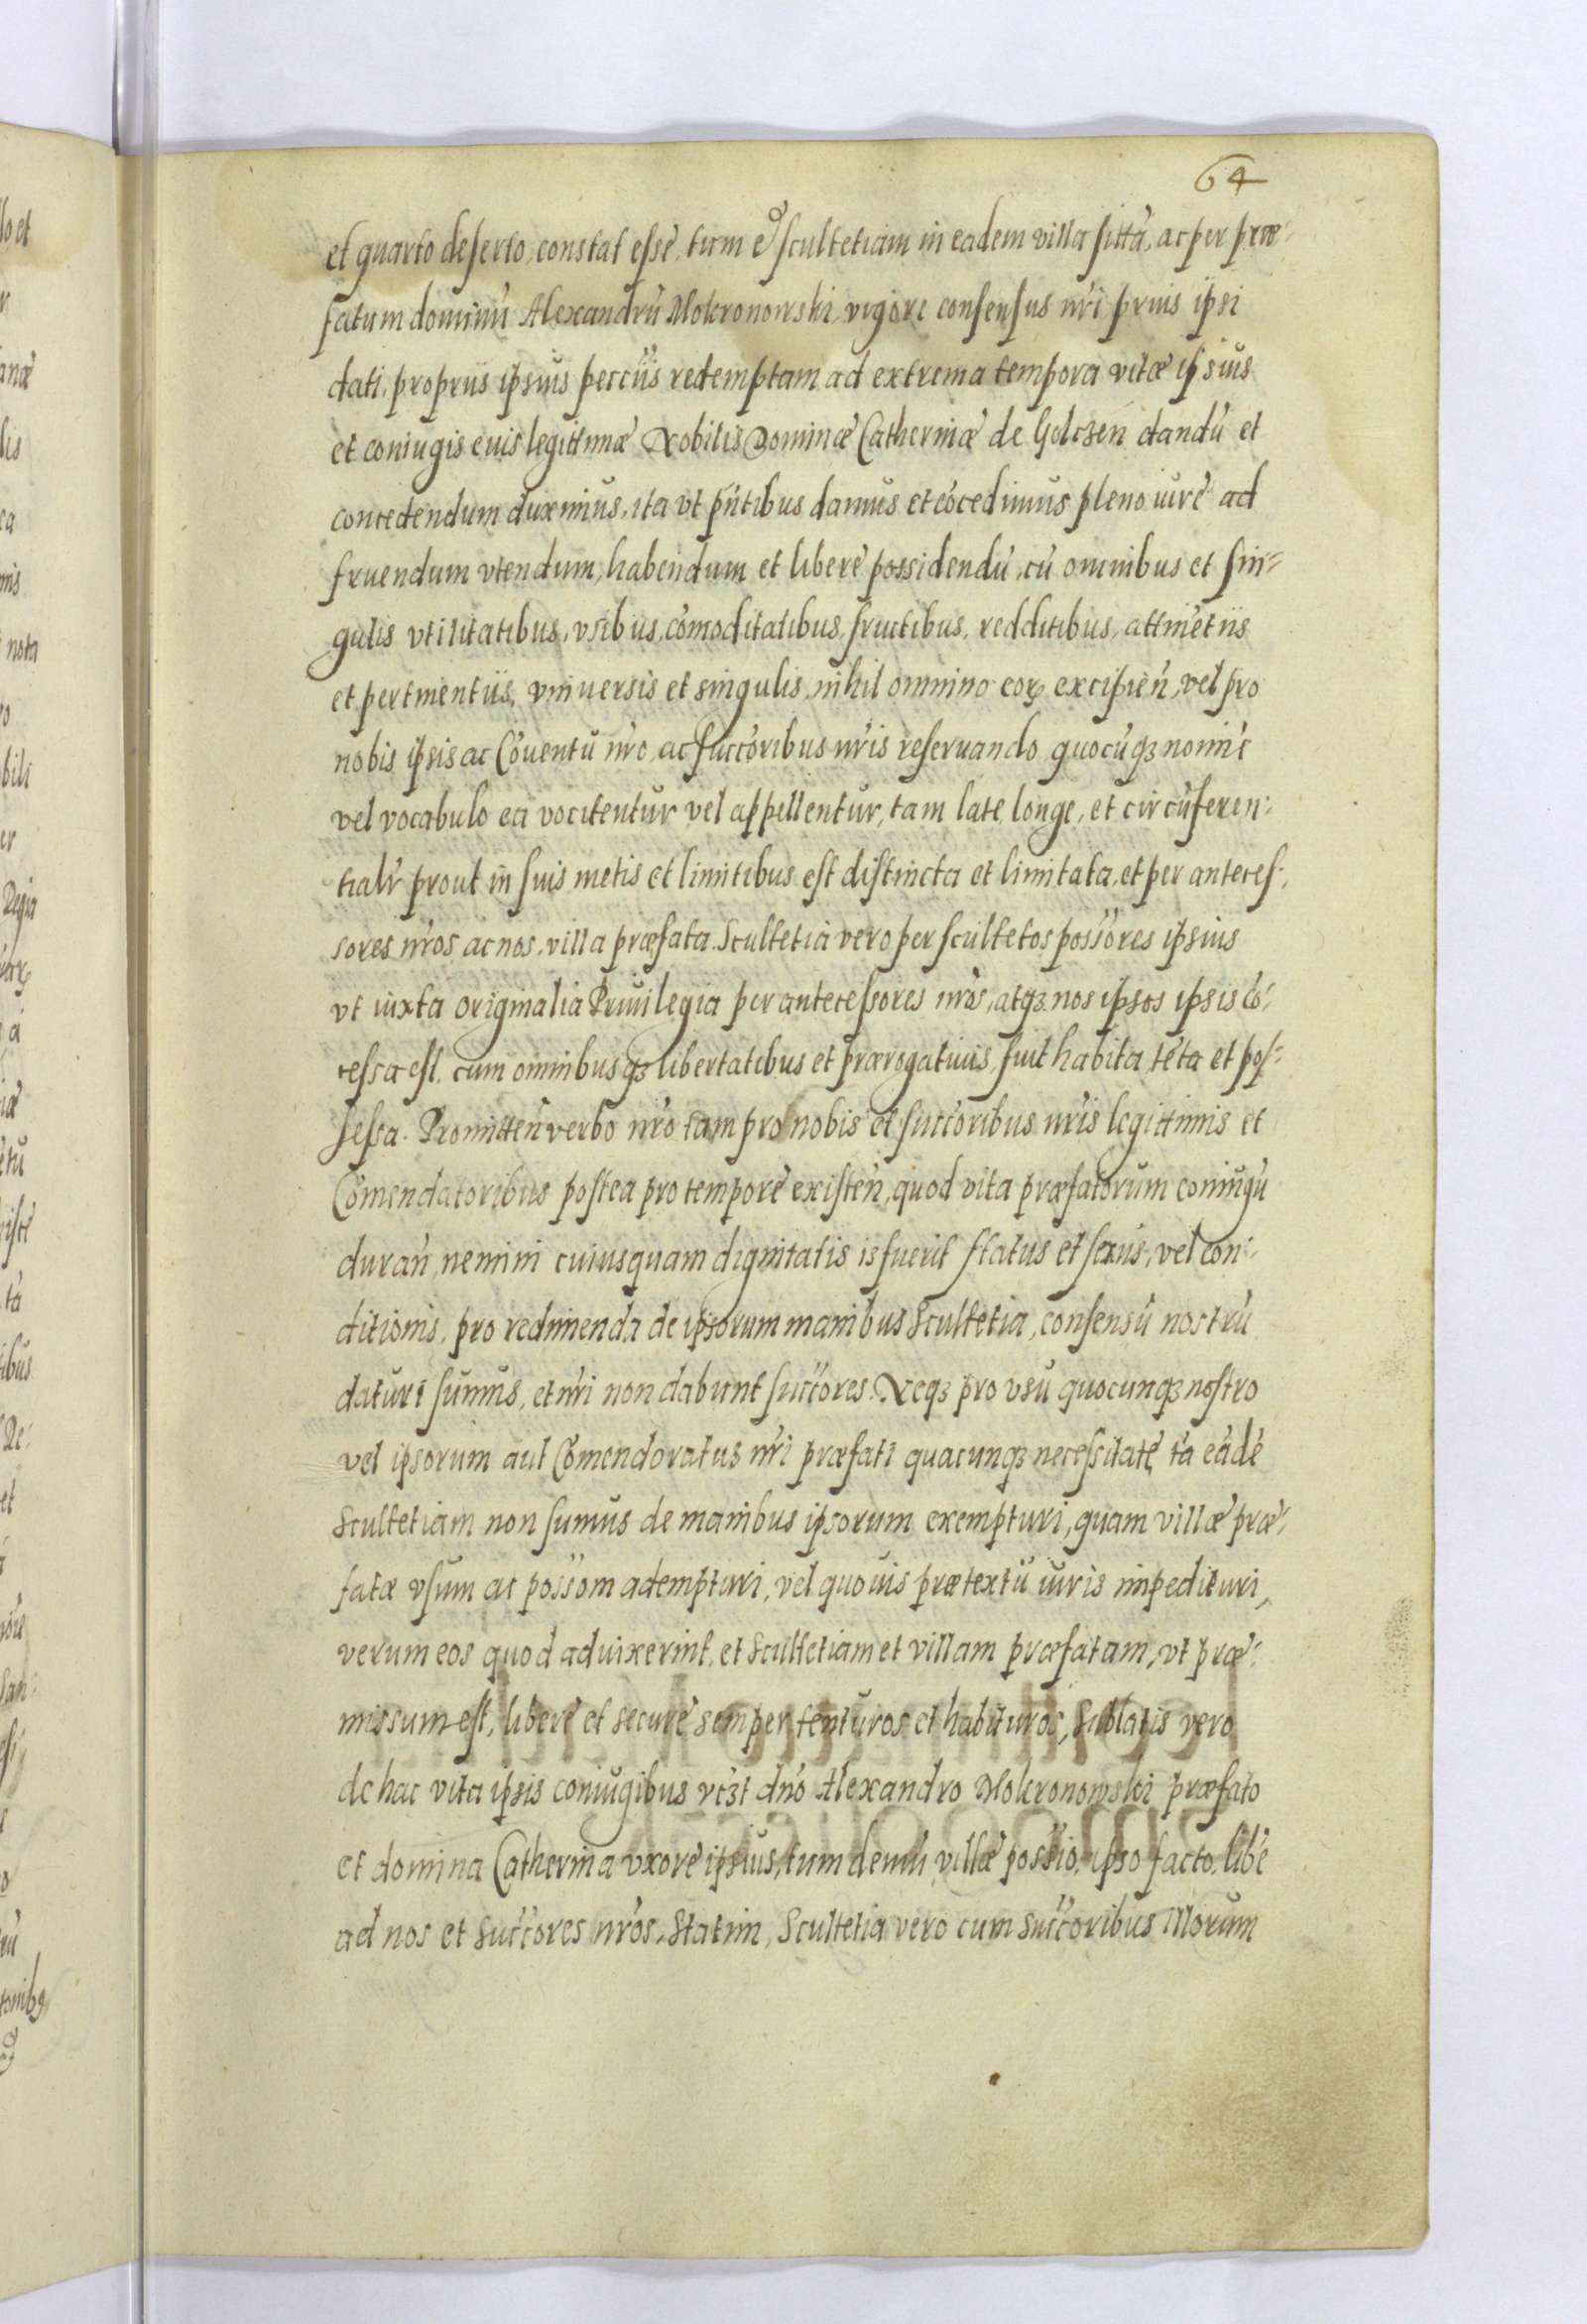 64
et quarto deserto, constat esse, tum et scultetiam in eadem villa sittã, ac per præ-
fatum dominũ Alexandrũ Mokronowski, vigore consensus nr̃i prius ipsi
dati, propriis ipsius peccũiis redemptam ad extrema tempora vitæ ipsius
et coniugis eius legittimæ Nobilis Dominæ Catherinæ de Golczen dandũ et
concedendum duximus, ita vt pñtibus damus et cõcedimus pleno iure ad
fruendum vtendum, habendum et libere possidendũ, cũ omnibus et sin-
gulis vtilitatibus, vsibus, cõmoditatibus, fructibus, redditibus, attinẽtiis
et pertinentiis, vniuersis et singulis, nihil omnino eoꝝ excipieñ, vel pro
nobis ipsis ac Cõuentu nr̃o, ac succõribus nr̃is reseruando quocũqꝫ nomĩe
vel vocabulo ea vocitentur vel appellentur, tam late, longe, et circũferen-
tialr̃ prout in suis metis et limitibus est distincta et limitata, et per anteces-
sores nr̃os, ac nos, villa præfata. Scultetia vero per scultetos possores ipsius
vt iuxta originalia Priuilegia per antecessores nr̃os, atqꝫ nos ipsos ipsis cõ-
cessa est, cum omnibusqꝫ libertatibus et prærogatiuis, fuit habita, tẽta et pos-
sessa. Promitteñ verbo nr̃o tam pro nobis et succõribus nr̃is legittimis et
Cõmendatoribus postea pro tempore existeñ, quod vita præfatorum coniugũ
durañ, nemini cuiusquam dignitatis is fuerit status et sexus, vel con-
ditionis, pro redimenda de ipsorum manibus Scultetia, consensũ nostrũ
daturi sumus, et nr̃i non dabunt succõres. Neqꝫ pro vsu quocunqꝫ nostro
vel ipsorum aut Cõmendoratus nr̃i præfati quacunqꝫ necessitate, tã eãdẽ
Scultetiam non sumus de manibus ipsorum exempturi, quam villæ præ-
fatæ vsum ac possom adempturi, vel quouis prætextu iuris impedituri,
verum eos quod aduixerint, et Scultetiam et villam præfatam, vt præ-
missum est, libere et secure semper tenturos et habituros, Sublatis vero
de hac vita ipsis coniugibus vcꝫt dño Alexandro Mokronowski præfato
et domina Catherina vxore ipsius, tum demũ villæ possio, ipso facto, libẽ
ad nos et succõres nr̃os, Statim, Scultetia vero cum succõribus illorum